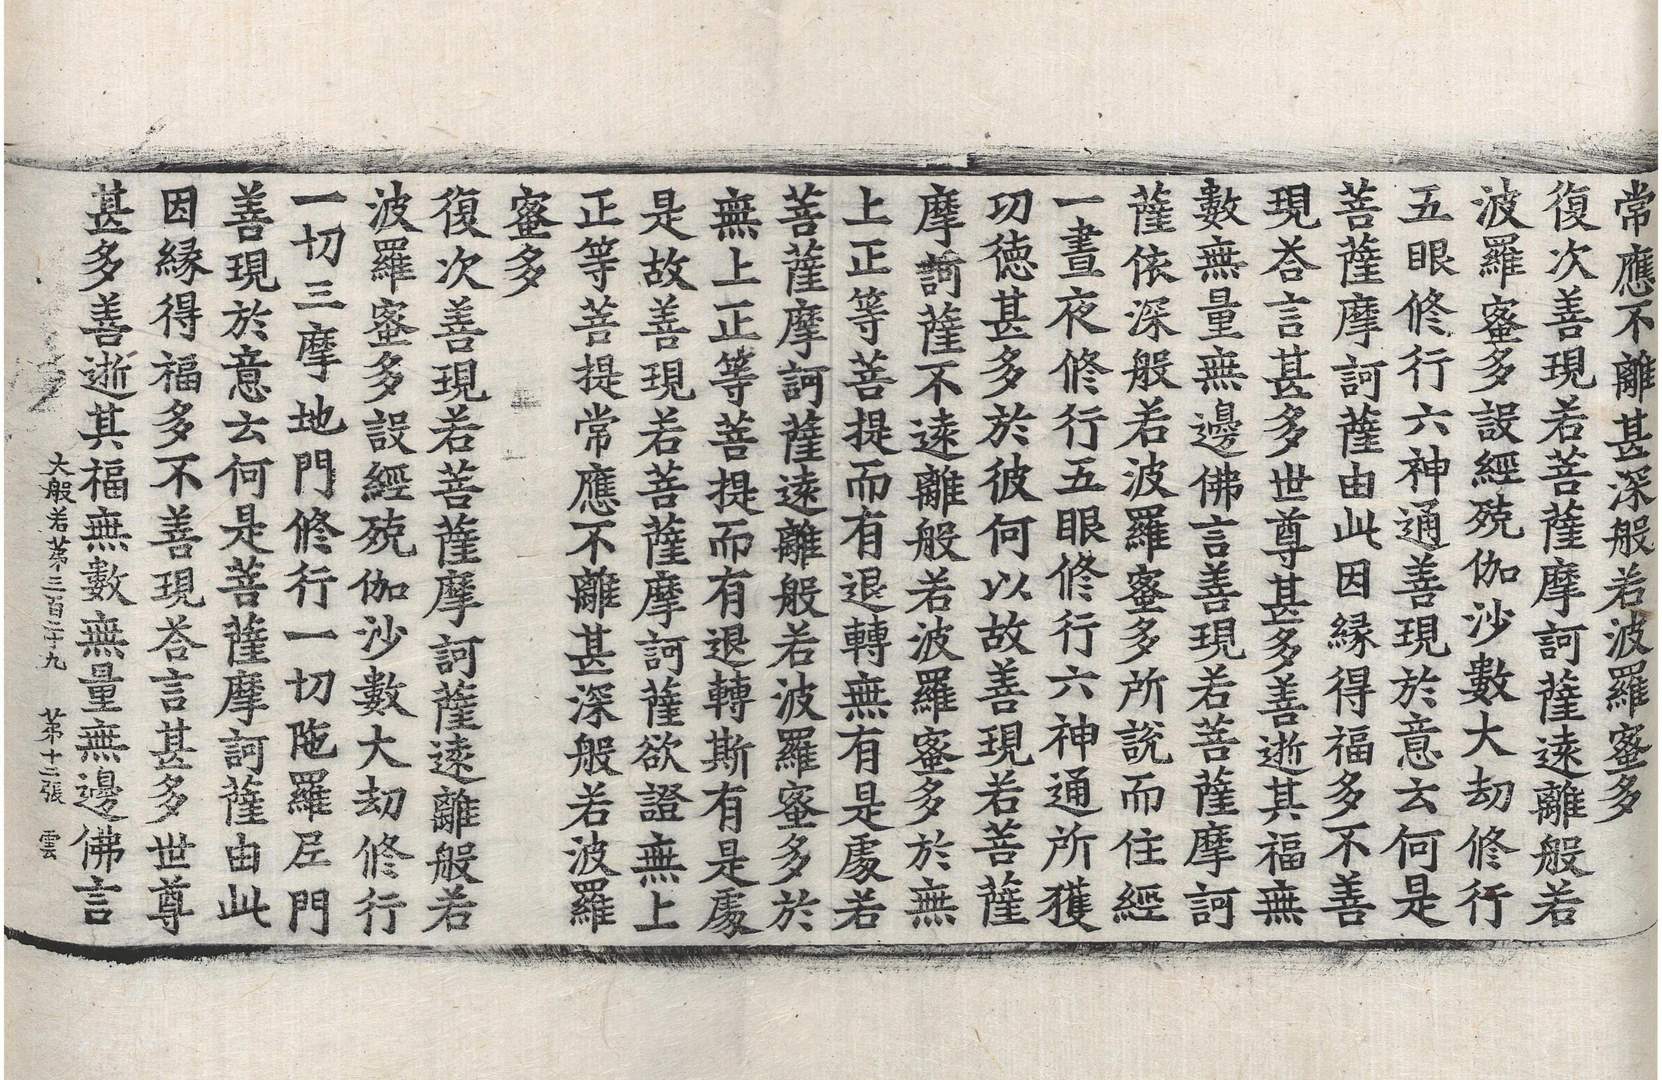 常應不離甚深般若波羅蜜多
復次善現若菩薩摩訶薩遠離般若
波羅蜜多設經殑伽沙數大劫修行
五眼修行六神通善現於意云何是
菩薩摩訶薩由此因緣得福多不善
現荅言甚多世尊甚多善逝其福無
數無量無邊佛言善現若菩薩摩訶
薩依深般若波羅蜜多所說而住經
一晝夜修行五眼修行六神通所獲
功德甚多於彼何以故善現若菩薩
摩訶薩不遠離般若波羅蜜多於無
上正等菩提而有退轉無有是處若
菩薩摩訶薩遠離般若波羅蜜多於
無上正等菩提而有退轉斯有是處
是故善現若菩薩摩訶薩欲證無上
正等菩提常應不離甚深般若波羅
蜜多
復次善現若菩薩摩訶薩遠離般若
波羅蜜多設經殑伽沙數大劫修行
一切三摩地門修行一切陁羅尼門
善現於意云何是菩薩摩訶薩由此
因緣得福多不善現荅言甚多世尊
甚多善逝其福無數無量無邊佛言
大般若第三百二十九 第十二張 雲